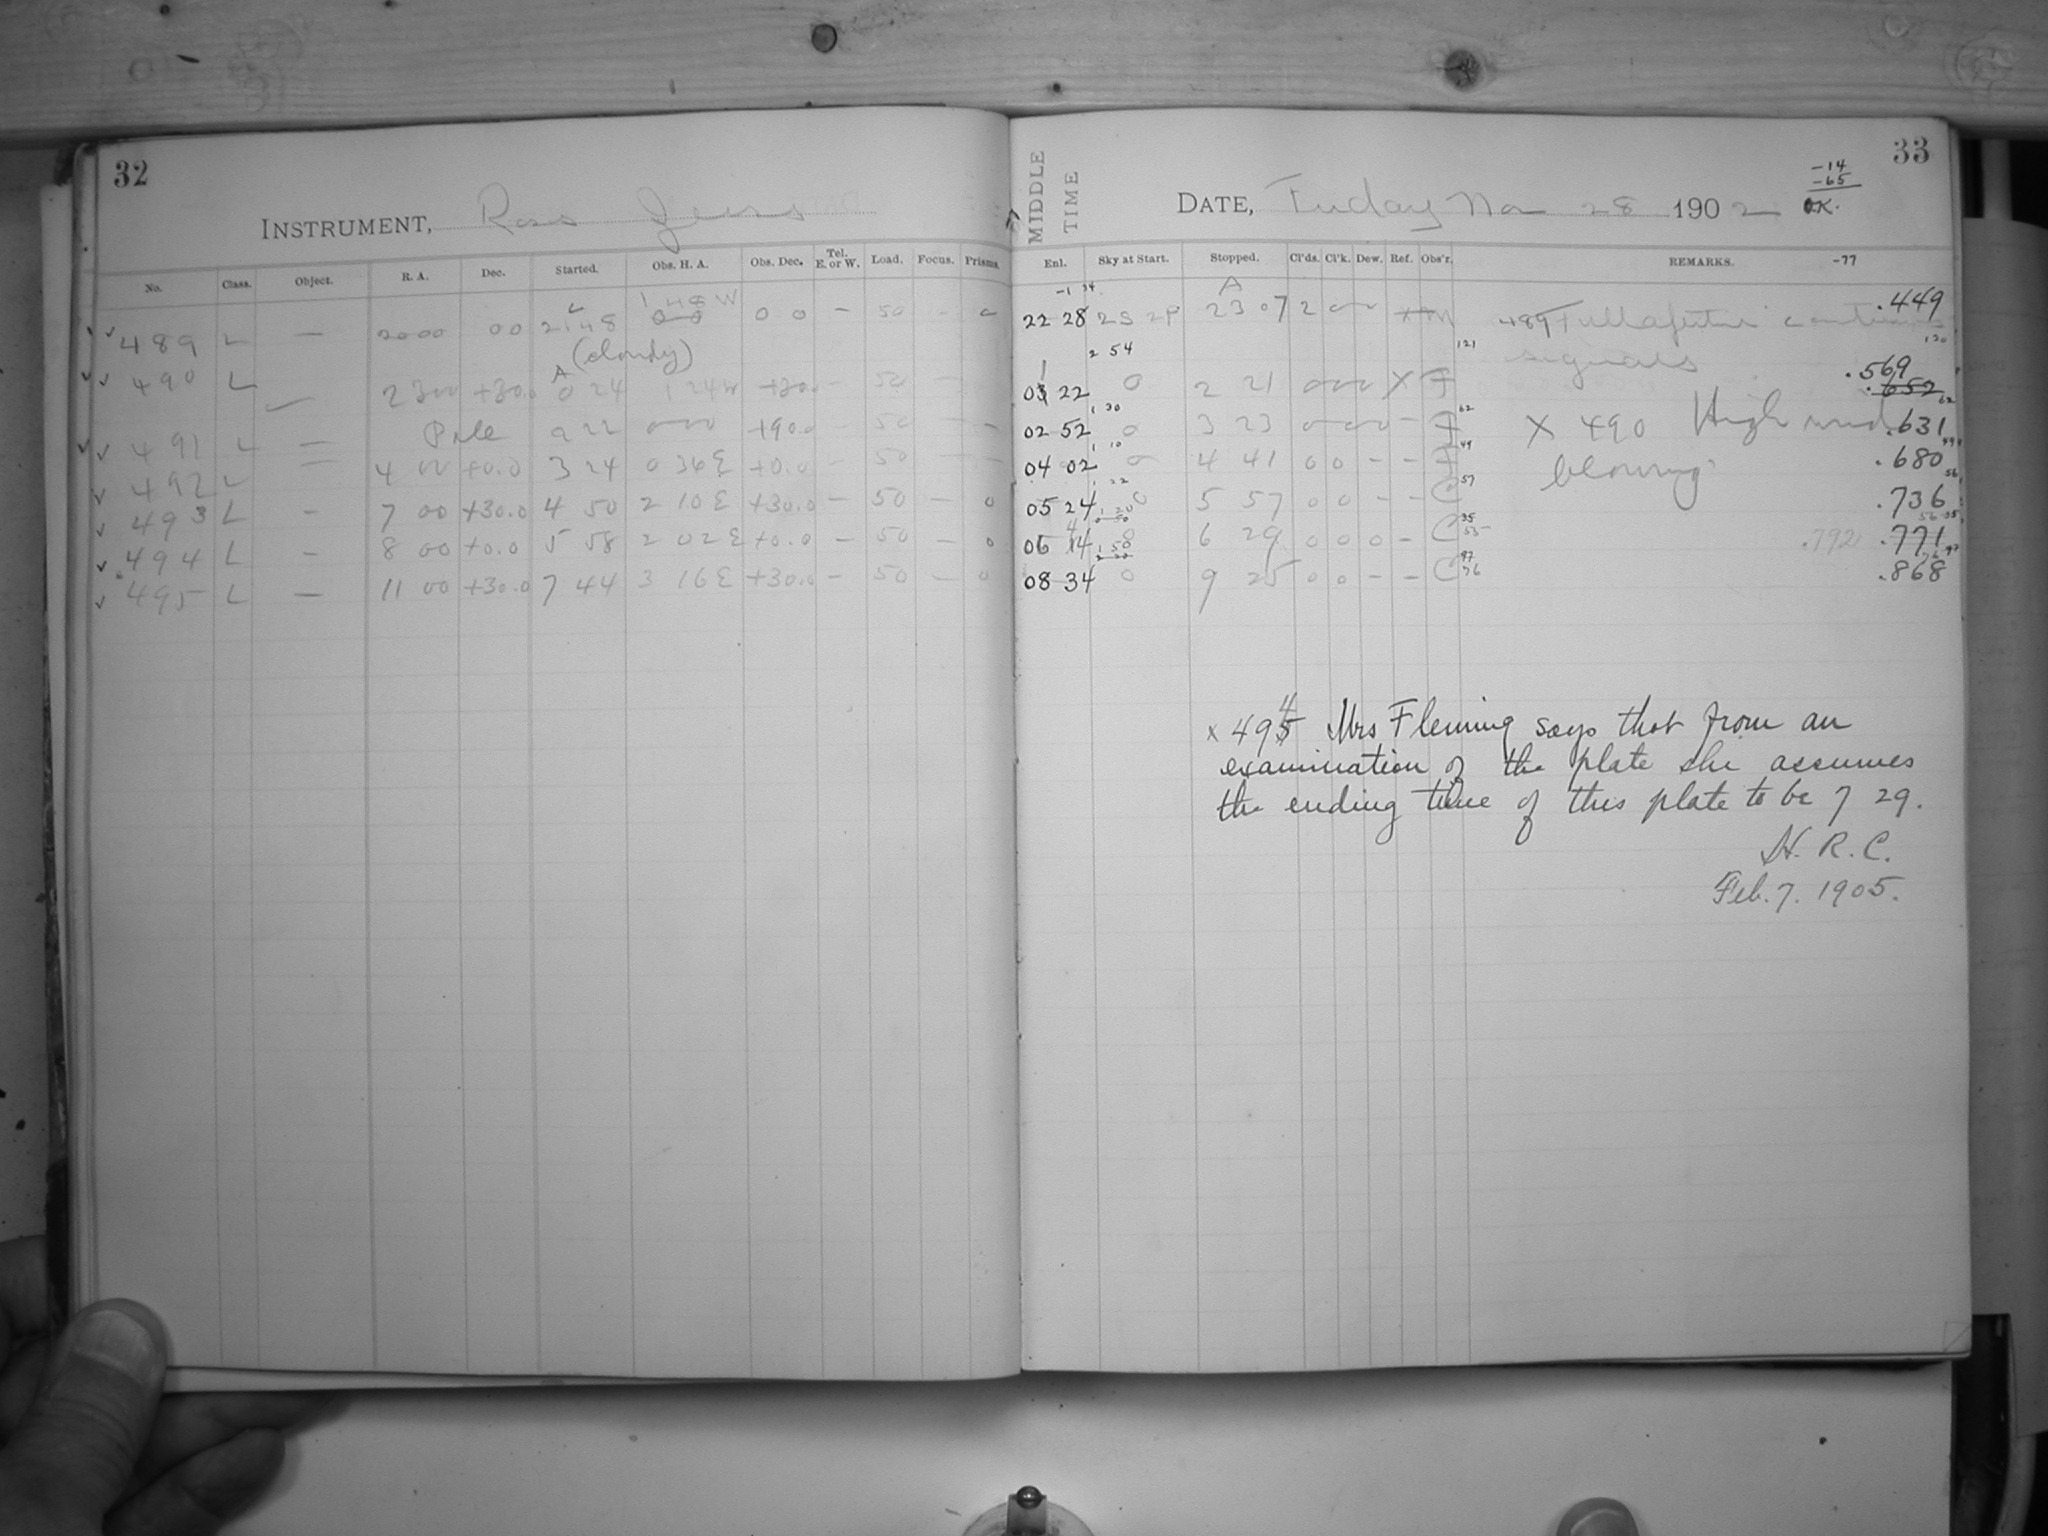 32
INSTRUMENT, Ross
No. Class. Object. R. A. Dec. Started. Obs. H. A. Obs. Dec. Tel. E. or W. Load. Focus. Prisms.
489 L — 2000 00 2148 1 48 W 0 0 — 50 —
(cloudy)
490 L 2300 +30.0 0 24 1 24W +30. — 50 —
491 L — Pole 2 22 000 +90.0 — 50 — —
492 L — 4 00 +0.0 3 24 0 36E +0.0 — 50 — —
493 L — 7 00 +30.0 4 50 2 10E +30.0 — 50 — 0
494 L — 8 00 +0.0 5 58 2 02E +0.0 — 50 — 0
495 L — 11 00 +30.0 7 44 3 16E +30.0 — 50 — 0
33
MIDDLE TIME
DATE, 28 1902
-14
-65
O.K.
Enl. Sky at Start. Stopped. Cl'ds. Cl'k. Dew. Ref. Obs'r. REMARKS. -77
-1 34
22 28 2S 2P A 23 07 2 489 Full aperture .449
2 54 121 120
signals
03 22 0 2 21 000 X F .569
.652
1 30 62
02 52 0 3 23 000 - F X 490 High wind .631
1 10 49
04 02 0 4 41 0 0 - - F blowing .680
1 22 57
05 24 0 5 57 0 0 - - C .736
1 20 35
06 14 0 6 29 0 0 0 - C .792 .771
1 50 97
08 34 0 9 25 0 0 - - C 76 .868
x 494 Mrs Fleming says that from an
examination of the plate she assumes
the ending time of this plate to be 7 29.
H. R. C.
Feb. 7. 1905.